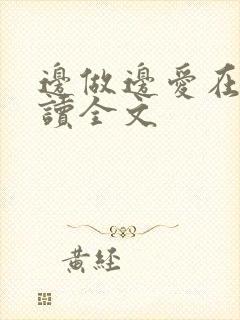 邊做邊愛在
讀全文
黃經